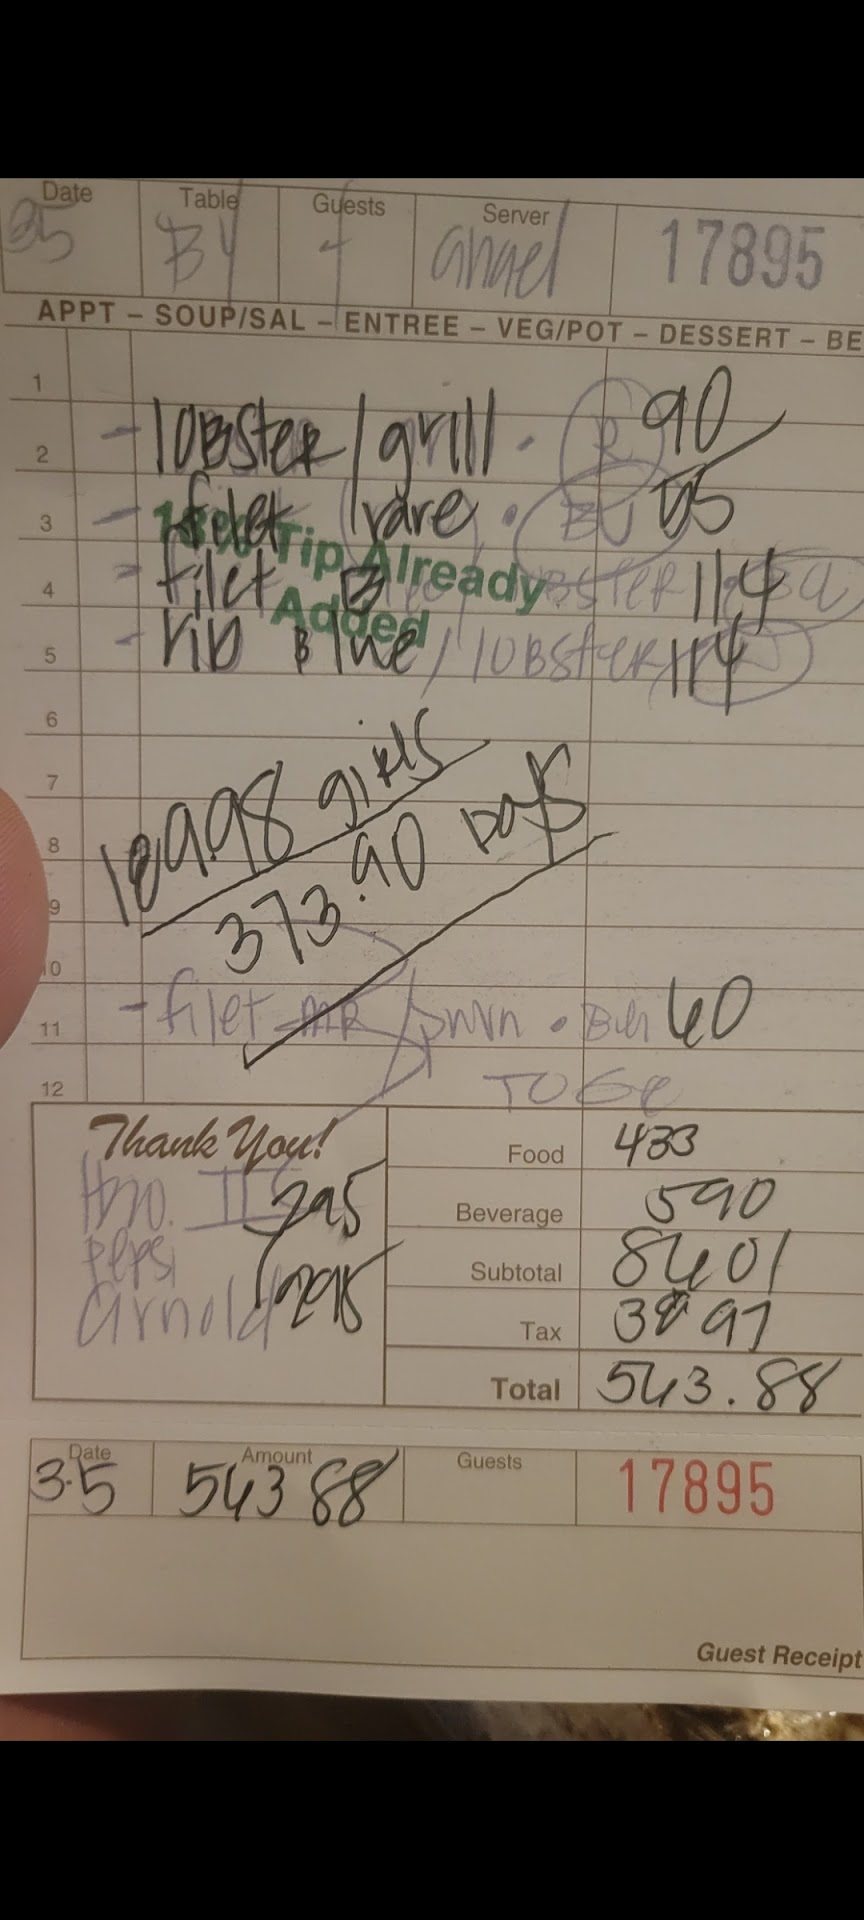 Date Table Guests Server
B4 4 angel 17895
APPT – SOUP/SAL – ENTREE – VEG/POT – DESSERT – BE
1
2 - lOBSTER / grill . R 90
3 - filet / rare . BU 55
Tip Already
Added
4 - filet B LOBSTER 114
5 - rib Blue / lOBSTER 114
6
7 189.98 girls
8 373.90 Boys
9
10
11 - filet MR 60
12 TO Go
Thank You!
Food 433
Beverage 590
295
Pepsi
Subtotal
Arnold 295
Tax
Total 543.88
Date Amount Guests
3.5 543 88 17895
Guest Receipt